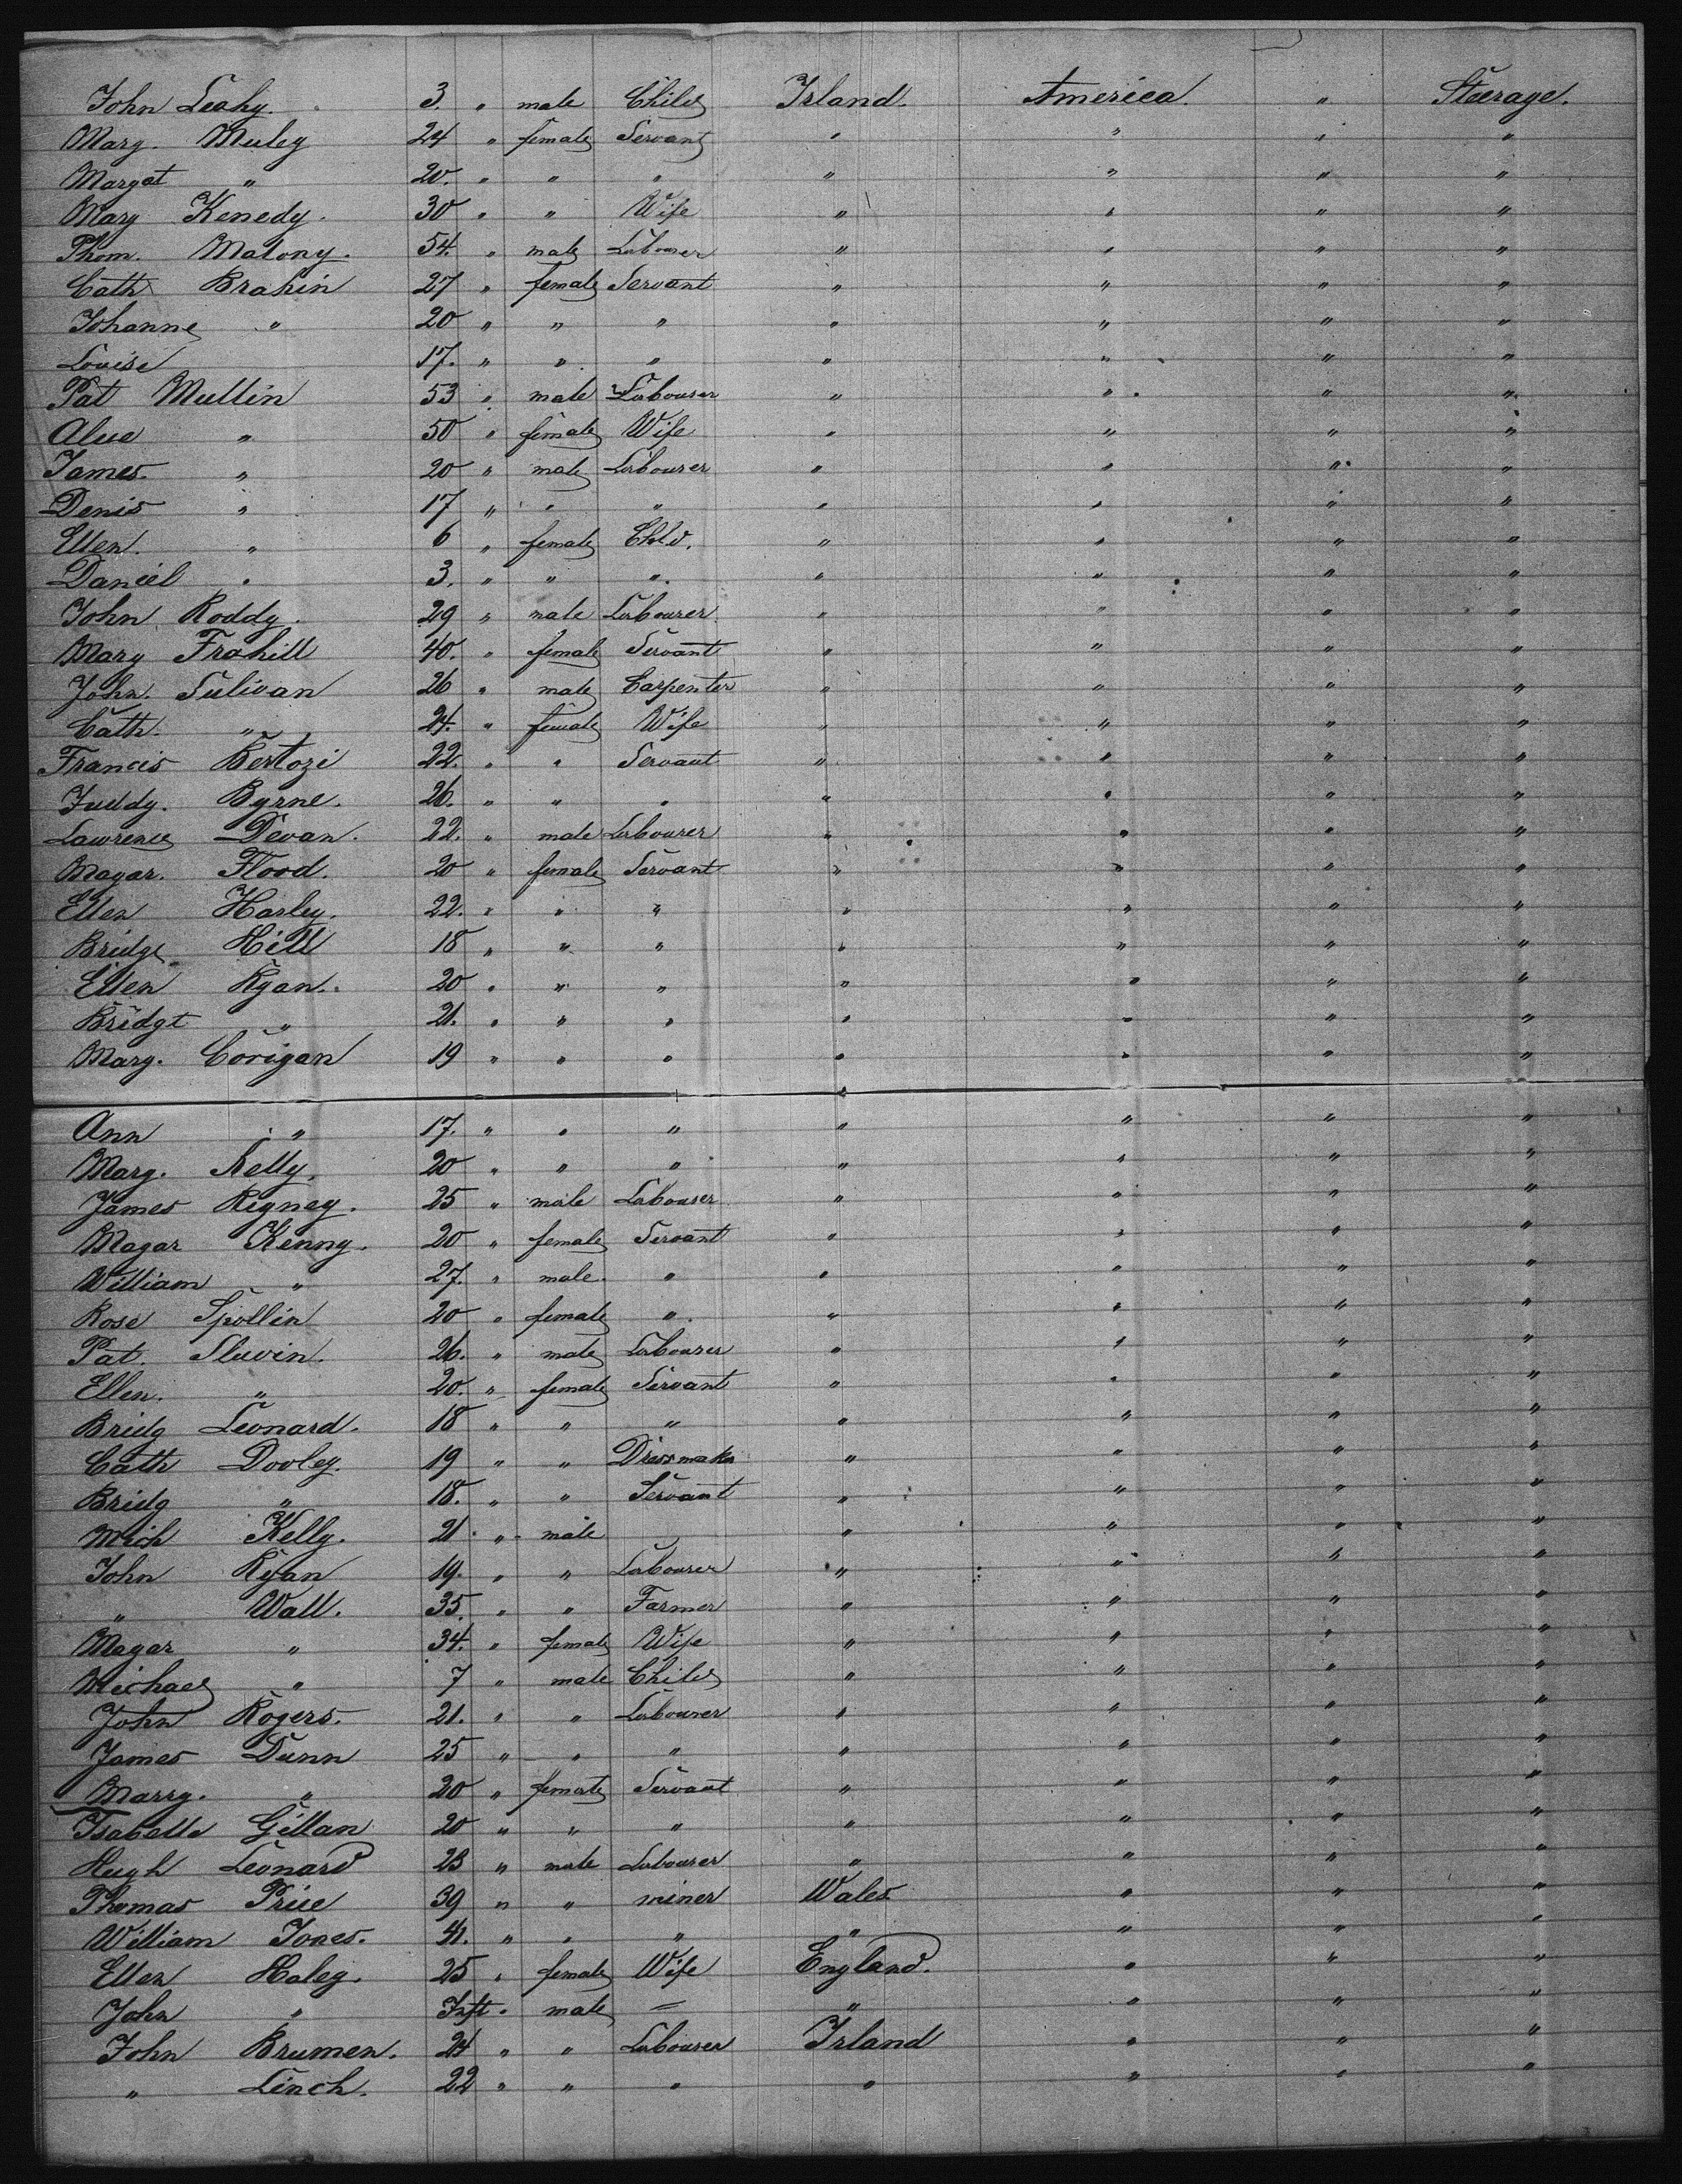 John Leahy. 3. " male Child Irland. America. " Steerage.
Marg. Muley 24 " female Servant " " " "
Margat " 20. " " " " " " "
Mary Kenedy. 30 " " Wife " " " "
Thom. Malony. 54. " male Labourer " " " "
Cath Brahin 27 " female Servant " " " "
Johanne " 20 " " " " " " "
Louise 17. " " " " " " "
Pat Mullin 53 " male Labourer " " " "
" 50 " female Wife " " " "
James " 20 " male Labourer " " " "
Denis " 17 " " " " " " "
Ellen. " 6 " female Child. " " " "
Daniel " 3. " " " " " " "
John Roddy. 29 " male Labourer. " " " "
Mary Frahill 40. " female Servant " " " "
John. Sulivan 26 " male Carpenter " " " "
Cath. " 24. " female Wife " " " "
Francis Bertozi 22. " " Servant " " " "
Juddy. Byrne. 26. " " " " " " "
Lawrence Devan. 22. " male Labourer " " " "
Magar. Flood. 20 " female Servant " " " "
Ellen Harley. 22. " " " " " " "
Bridge Hill 18 " " " " " " "
Ellen Ryan. 20 " " " " " " "
Bridgt " 21. " " " " " " "
Marg. Corigan 19 " " " " " " "
Ann " 17. " " " " " " "
Marg. Kelly. 20 " " " " " " "
James Rigney. 25 " male Labourer " " " "
Magar Kenny. 20 " female Servant " " " "
William " 27. " male " " " " "
Rose Spollin 20 " female " " " " "
Pat. Sluvin. 26. " male Labourer " " " "
Ellen. " 20. " female Servant " " " "
Bridg Leonard. 18 " " " " " " "
Cath Dooley. 19 " " Dressmaker " " " "
Bridg " 18. " " Servant " " " "
Mich Kelly. 21. " male " " " "
John Ryan 19. " " Labourer " " " "
" Wall. 35. " " Farmer " " " "
Magar " 34. " female Wife " " " "
Michael " 7 " male Child " " " "
John Rogers. 21. " " Labourer " " " "
James Dunn 25 " " " " " " "
Marrg. " 20 " female Servant " " " "
Isabella Gillan 20 " " " " " " "
Hugh Leonard 23 " male Labourer " " " "
Thomas Price 39 " " miner Wales " " "
William Jones. 41. " " " " " " "
Ellen Haley. 25 " female Wife England. " " "
John " Inft. " male — " " " "
John Brumen. 24 " " Labourer Irland " " "
" Linch. 22 " " " " " " "